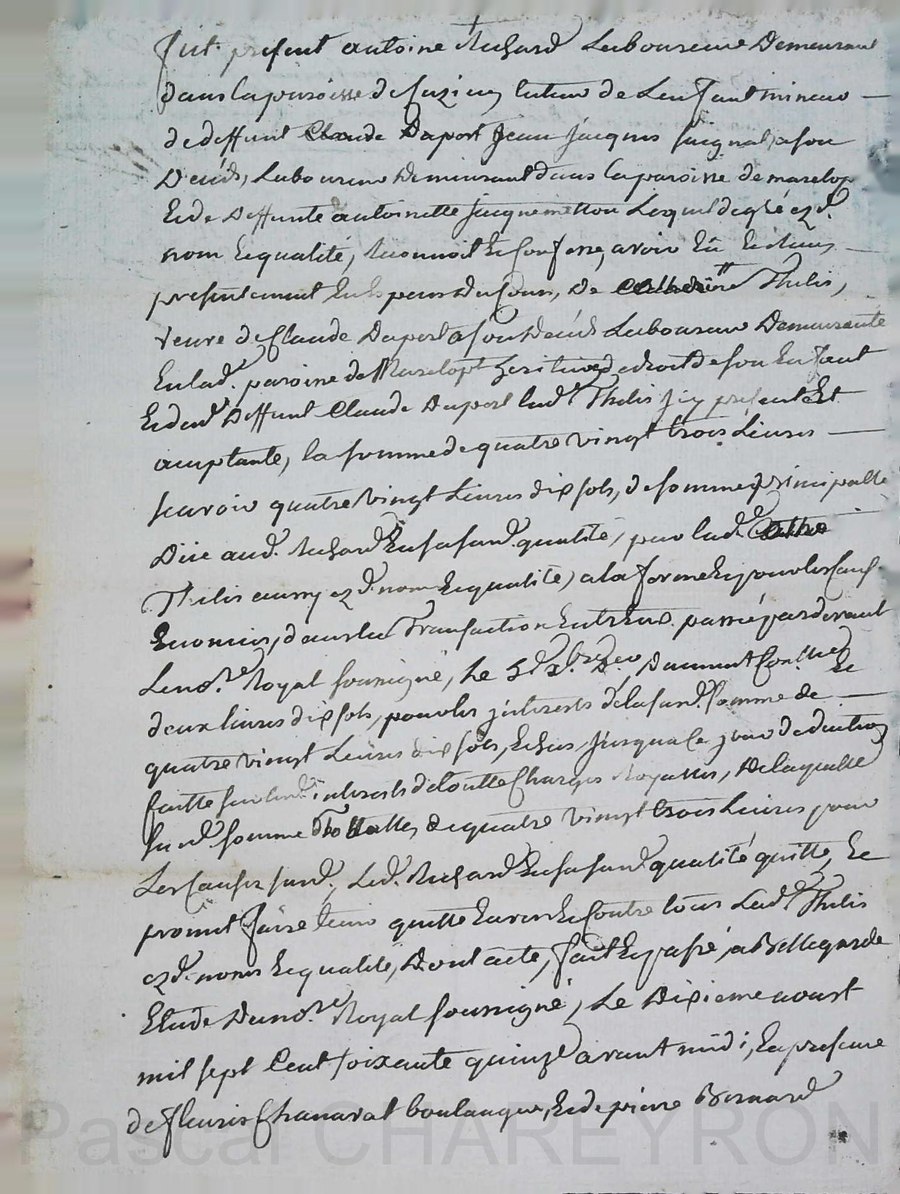 fut present antoine Richard Laboureur Demeurant
dans la paroisse de tuteur de Lenfant mineur
de deffunt Claude Duport Jean Jacques a son
Deceds, Laboureur Demeurant dans la paroisse de marclop
Et de Deffunte antoinette jacquemetton Lequel de gré ezd.
nom Et qualité, Reconnoit Et Confesse, avoir Eu Et Receu
presentement En Especes du Cours, De Thelis,
veuve de Claude Duport a son Deceds Laboureur Demeurante
En lad. paroisse de Marclopt heritiere de droit de son Enfant
Et dud. Deffunt Claude Duport lad. Thelis icy presente Et
acceptante, la somme de quatre vingt trois Livres
scavoir quatre vingt Livres dix sols, de somme principalle
Düe aud. Richard En sa sand. qualité, par lad.
Thelis aussy ezd. nom Et qualité, a la forme Et pour les Causes
Enoncées, dans la Transaction Entreux passée pardevant
Le no.re Royal soussigné, Le Dument Con.llee Et
deux livres dix sols, pour les jnterests de la susd. somme de
quatre vingt Livres dix sols, Echus jusqua ce jour deduction
faitte sur lesd. interests de toutte Charges Royalles, De laquelle
susd. somme Totalle, de quatre vingt trois Livres pour
Les Causes susd., Led. Richard En sa susd. qualité quitte, Et
promet faire tenir quitte Envers Et Contre tous Lad. Thelis
ezd. noms Et qualité, Dont acte, fait Et passé, a Bellegarde
Etude Du no.re Royal soussigné, Le Dixieme aoust
mil sept Cent soixante quinze avant midi, En presence
de fleuris Chanavat boulanger, Et de pierre Bernard
Pascal CHAREYRON